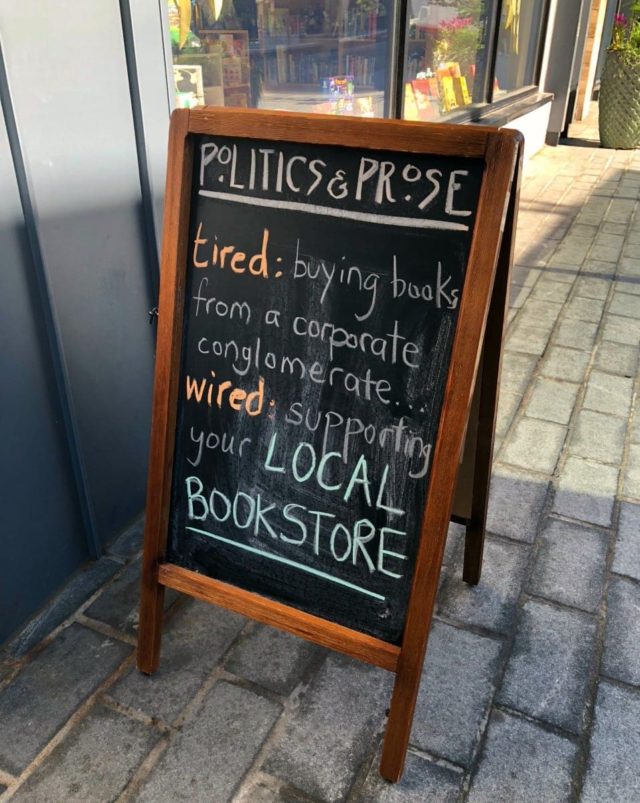 POLITICS & PROSE
tired: buying books
from a corporate
conglomerate...
wired: supporting
your LOCAL
BOOKSTORE